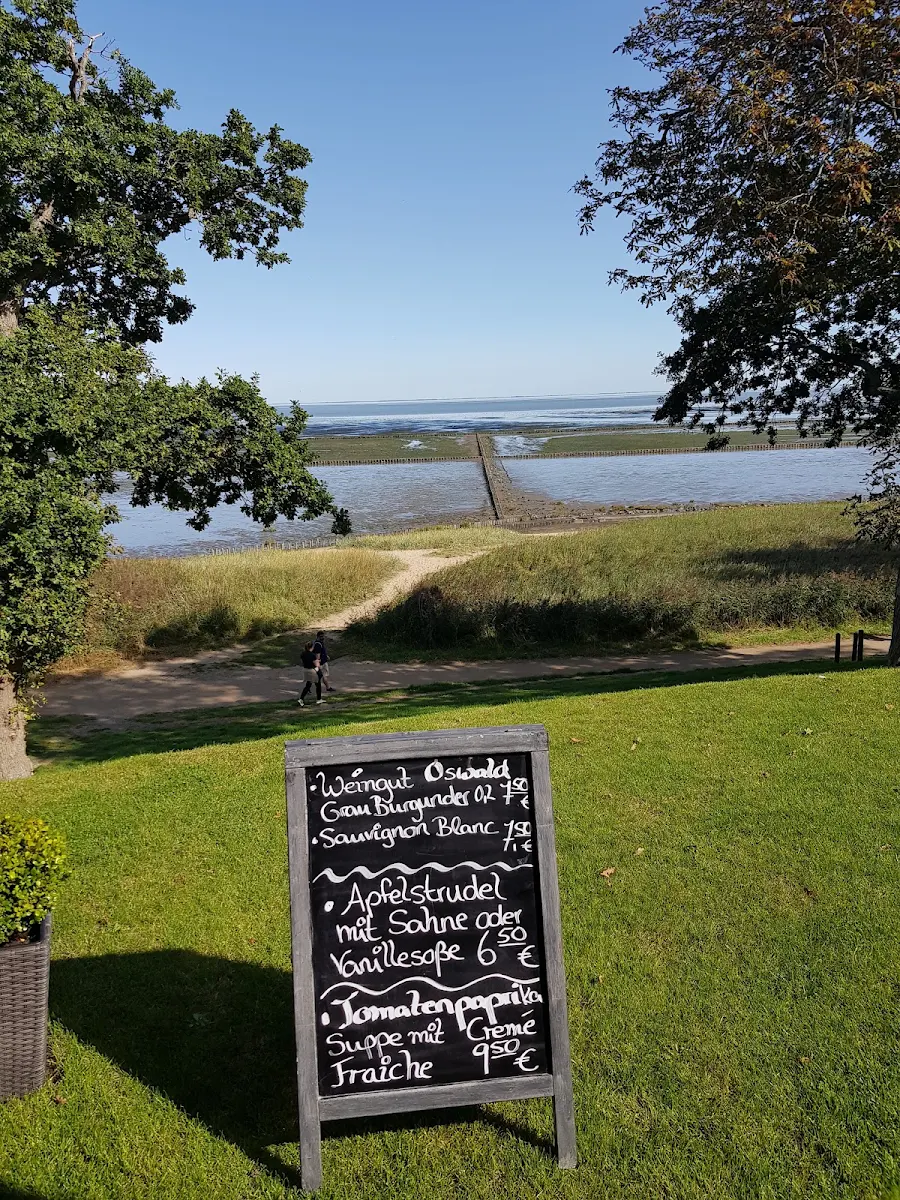 • Weingut Oswald
Grau Burgunder 0,2 7,50 €
• Sauvignon Blanc 7,50 €
• Apfelstrudel
mit Sahne oder
Vanillesoße 6,50 €
• Tomatenpaprika
Suppe mit Cremé
Fraiche 9,50 €